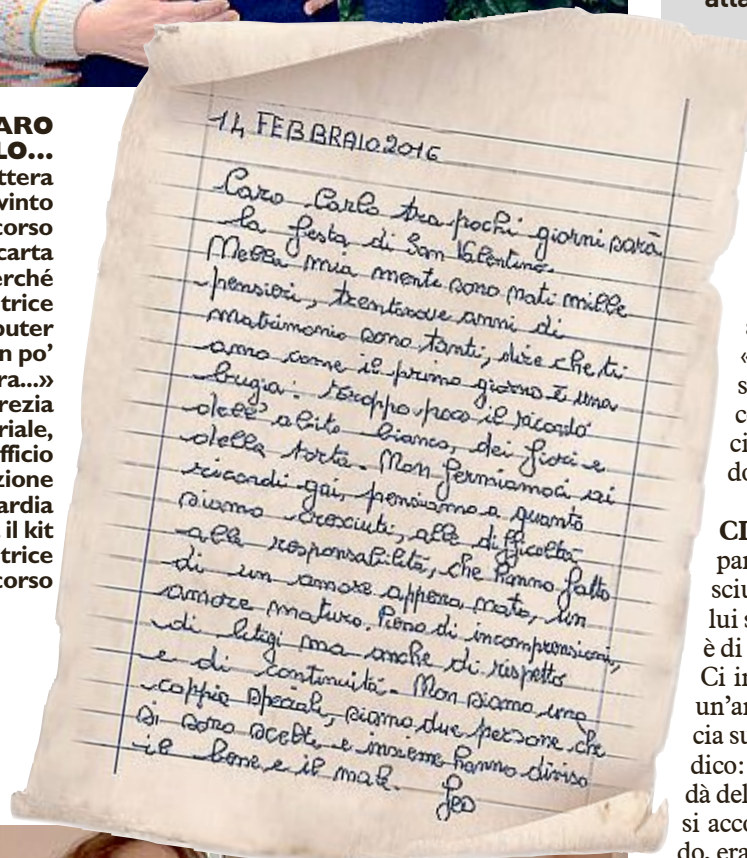 atta
ARO
LO...
ttera
vinto
corso
carta
erché
trice
puter
n po'
ra...»
rezia
riale,
fficio
zione
ardia
il kit
trice
corso
14 FEBBRAIO 2016
Caro Carlo tra pochi giorni sarà
la festa di San Valentino.
Nella mia mente sono nati mille
pensieri, trentanove anni di
matrimonio sono tanti, dire che ti
amo come il primo giorno è una
bugia: troppo poco il ricordo
dell'abito bianco, dei fiori e
della torta. Non fermiamoci ai
ricordi gai, pensiamo a quanto
siamo cresciuti, alle difficoltà
alle responsabilità, che hanno fatto
di un amore appena nato, un
amore maturo. Pieno di incomprensioni,
di litigi ma anche di rispetto
e di continuità. Non siamo una
coppia speciale, siamo due persone che
si sono scelte e insieme hanno diviso
il bene e il male.
«
s
c
ci
do
CI
par
sciu
lui s
è di
Ci in
un'ar
cia su
dico:
dà del
si acco
do, era